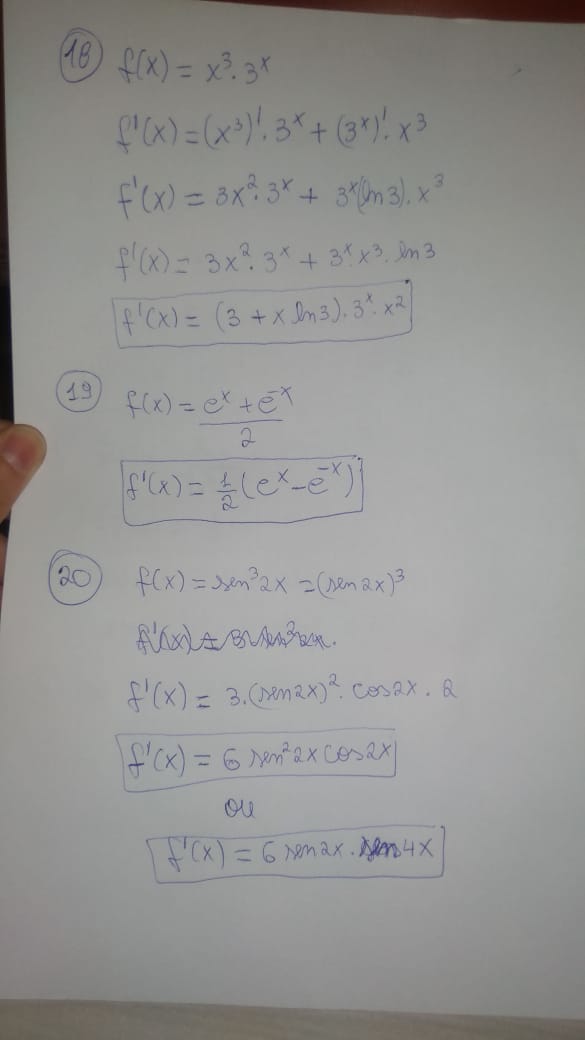 18 f(x) = x³. 3ˣ
f'(x) = (x³)'. 3ˣ + (3ˣ)'. x³
f'(x) = 3x². 3ˣ + 3ˣ(ln 3). x³
f'(x) = 3x². 3ˣ + 3ˣ. x³. ln 3
f'(x) = (3 + x ln 3). 3ˣ. x²
19 f(x) = eˣ + e⁻ˣ
2
f'(x) = 1/2 (eˣ - e⁻ˣ)
20 f(x) = sen³2x = (sen2x)³
f'(x) = 3.(sen2x)². cos2x. 2
f'(x) = 6 sen²2x cos2x
ou
f'(x) = 6 sen2x. sen4x